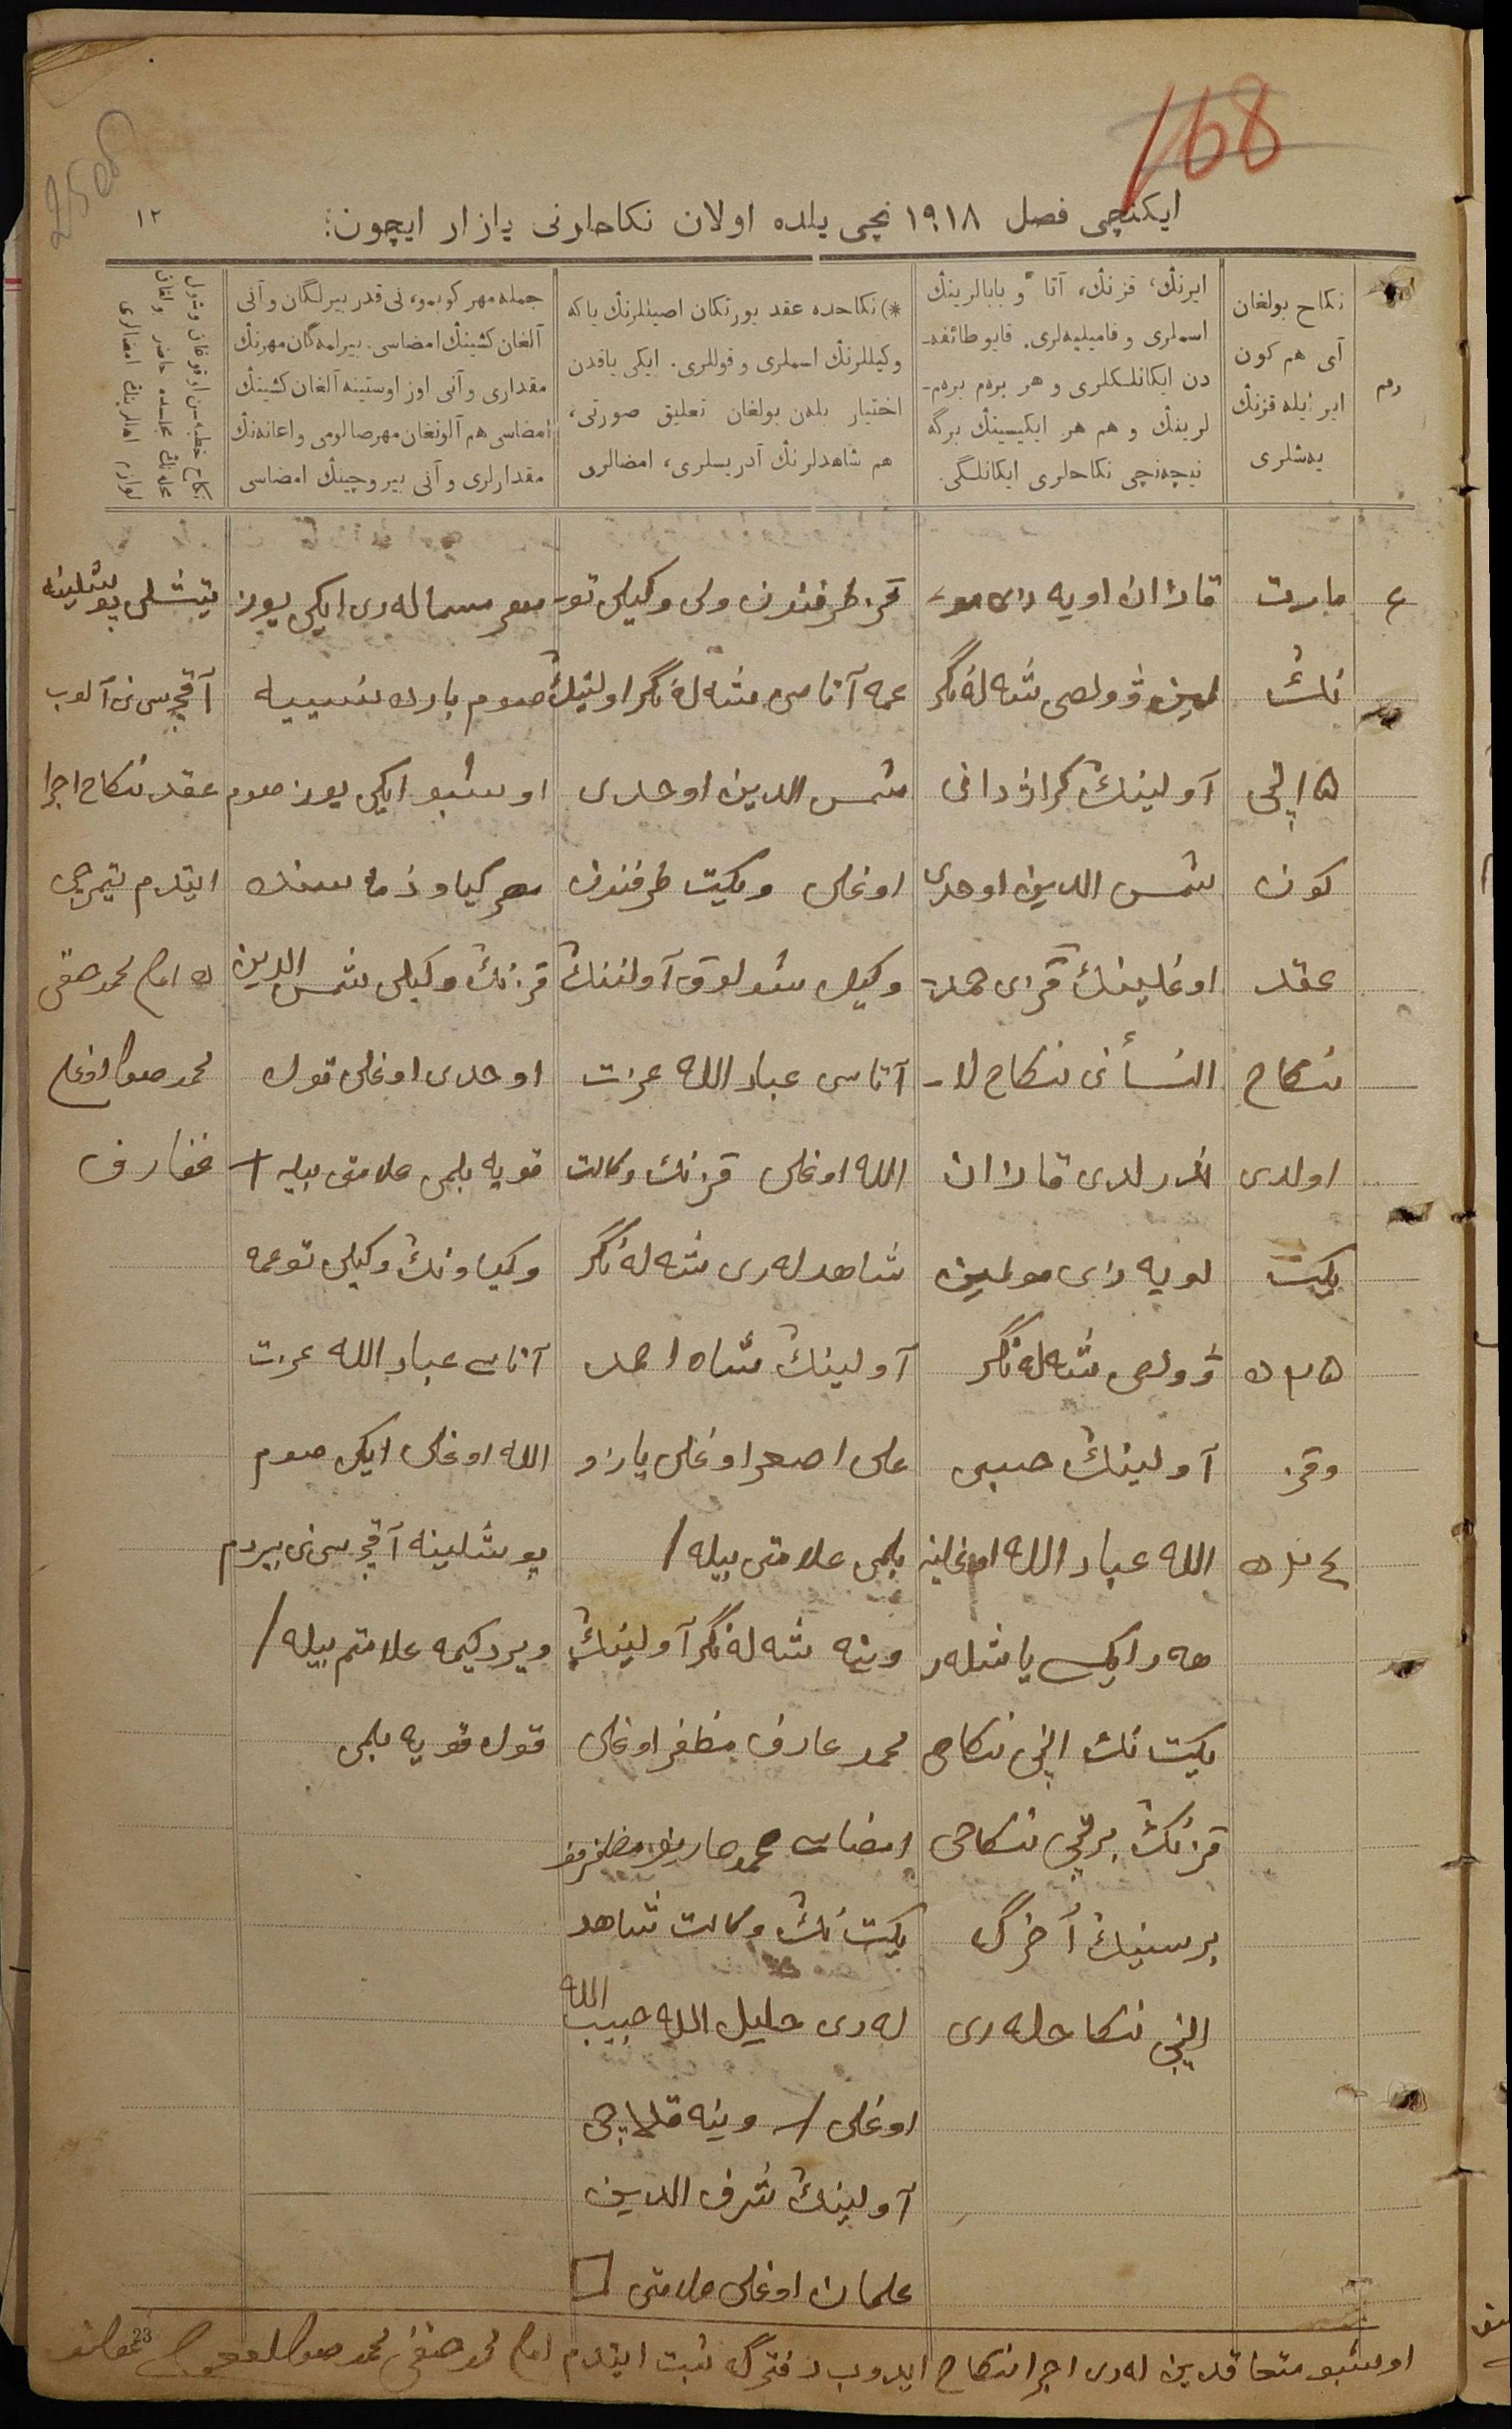 168
2508
ایکنچی فصل ١٩١٨ نچی یلده اولان نکاحلرنی یازار ایچون:
١٢
رقم
نکاح بولغان
آی هم کون
ایر ایله قزنڭ
یەشلری
ایرنڭ، قزنڭ، آتا و بابالرینڭ
اسملری و فامیلیەلری. قایو طائفه‌-
دن ایکانلکلری و هر بردم بردم-
لرینڭ و هم هر ایکیسینڭ برگه
نیچەنچی نکاحلری ایکانلگی.
*) نکاحده عقد یورتکان اصیللرنڭ یاکه
وکیللرنڭ اسملری و قوللری. ایکی یاقدن
اختیار بلەن بولغان تعلیق صورتی،
هم شاهدلرنڭ آدریسلری، امضالری
جمله مهر کوبمو، نی قدر بیرلگان و آنی
آلغان کشینڭ امضاسی. بیرلمەگان مهرنڭ
مقداری و آنی اوز اوستینه آلغان کشینڭ
امضاسی هم آلونغان مهر صالومی و اعانەنڭ
مقدارلری و آنی بیروچینڭ امضاسی
نکاح خطبەسن اوقوغان وقبول
محلەنڭ مجلسده حاضر ولغان
لوازم اهللرینڭ امضالری
٤
مارت
نڭ
١٥ نچی
کون
عقد
نکاح
اولدی
یکیت
٥٢ ده
وقز
ده
قازان اویه زی مو-
لمین وولصی شەلەنگر
آولینڭ کراژدانی
شمس الدین اوحدی
اوغلینڭ قزی حمد-
النسأنی نکاح لا-
ندرلدی قازان
اویه زی مولمین
وولصی شەلەنگر
آولینڭ حبیب
الله عباد الله اوغلینه
هەر ایکسی یاشلەر
یکیت نڭ ایکنچی نکاحی
قزنڭ برنچی نکاحی
برسینڭ اُخرگە
ایکنچی نکاحلەری
قز طرفندن ولی وکیلی تو-
عمه آتاسی شەلەنگر اولینڭ
شمس الدین اوحدی
اوغلی ویکیت طرفندن
وکیل شولوق آولننڭ
آتاسی عباد الله عزت
الله اوغلی قزنڭ وکالت
شاهدلەری شەلەنگر
آولینڭ شاه احمد
علی اصغر اوغلی یازو
بلمی علامتی بیله /
وینه شەلەنگر آولینڭ
محمد عارف مظفر اوغلی
امضاسی محمد عارف مظفروف
یکیت نڭ وکالت شاهد
لەری خلیل الله حبیب الله
اوغلی / وینه قلاچی
آولینڭ شرف الدین
علمان اوغلی علامتی □
مهر مسمالەری ایکی یوز
صوم بارده نسییه
اوشبو ایکی یوز صوم
مهر کیاو ذمەسنده
قزنڭ وکیلی شمس الدین
اوحدی اوغلی قول
قویه بلمی علامتی بیله +
وکیاونڭ وکیلی تو عمه
آتاسی عباد الله عزت
الله اوغلی ایکی صوم
پوشلینه آقچەسنی بیردم
ویردکیمه علامتم بیله /
قول قویه بلمی
تیتشلی پوشلینه
آقچەسنی آلوب
عقد نکاح اجرا
ایتدم
امام محمد حنفی
غفاروف
اوشبو متعاقدین لەری اجرا نکاح ایدوب دفترگە ثبت ایتدم امام محمد حنفی
23